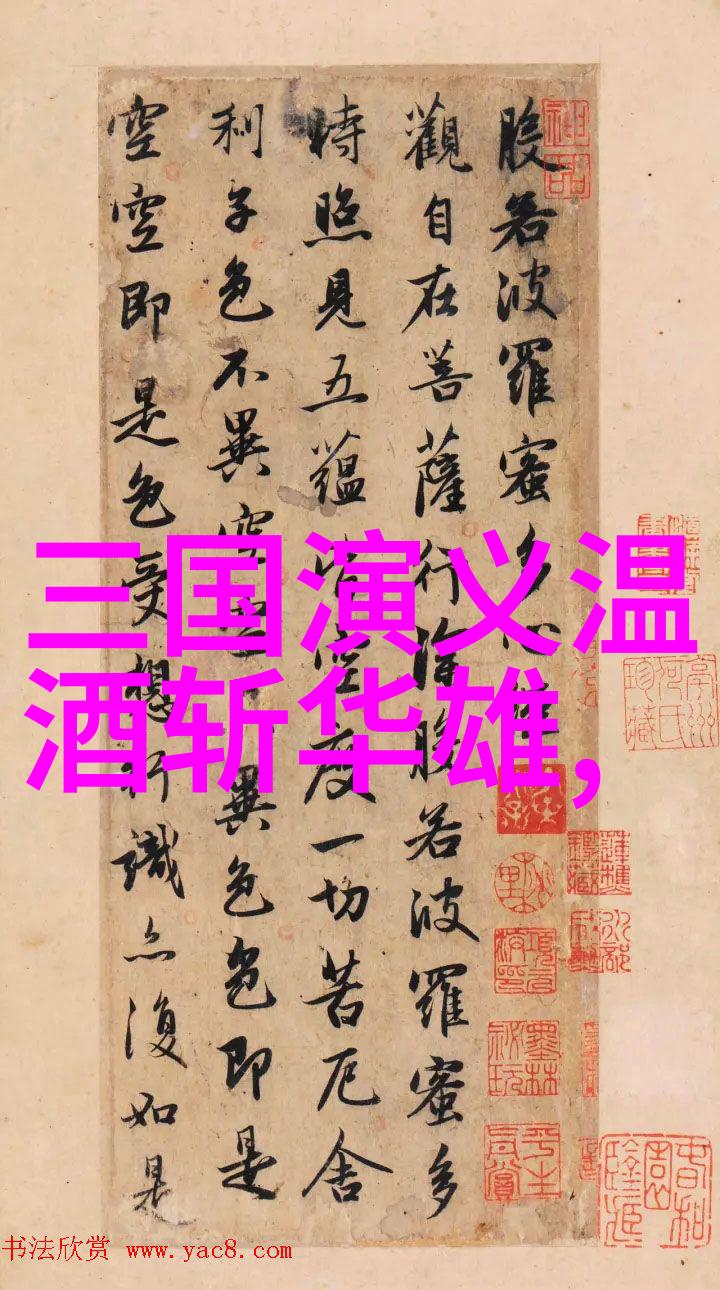 般若波羅蜜多心經
觀自在菩薩行深般若波羅蜜多
時照見五蘊皆空度一切苦厄舍
利子色不異空空不異色色即是
空空即是色受想行識亦復如是
三国演义温
酒斩华雄,
神品
墨林祕玩
书法欣赏 www.yac8.com